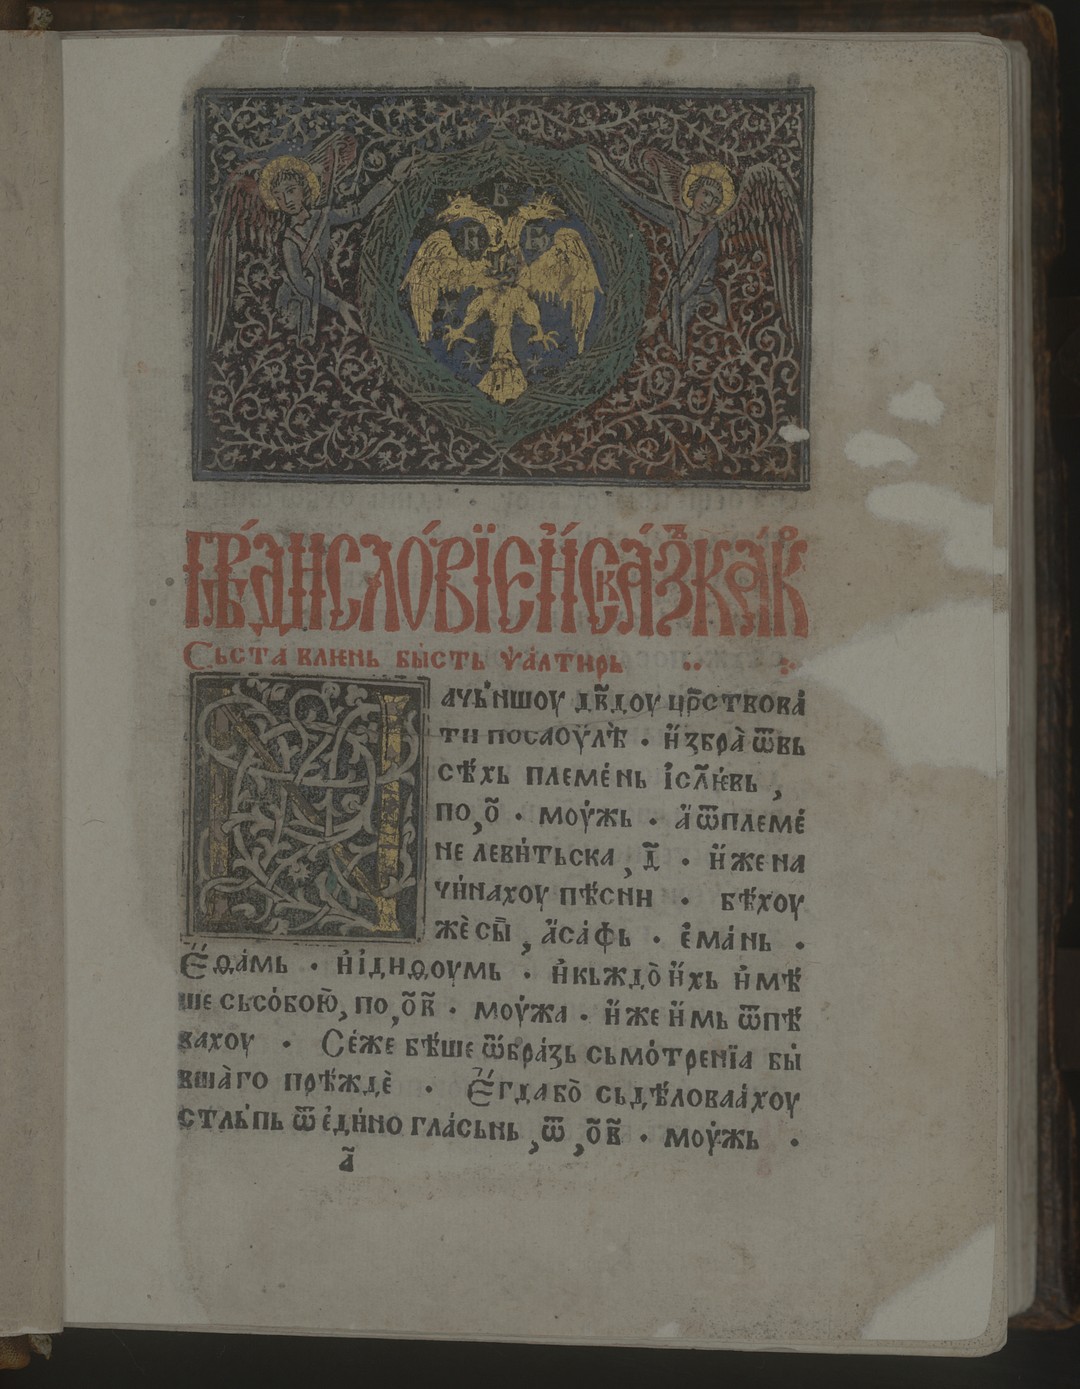 Б
Б Б
Гранословїе и сказ како
Съставлѥнь бысть ѱалтирь
Н ачьншоу дв҃доу цр҃ствова
ти посаоулѣ · и҆збра̀ ѿвь
сѣхь племе́нь і҆сл҃ѥвь ,
по ,о҃ · моу́жь · а҆ ѿплеме́
не леви́тьска , д҃ · и҆же на
чи́нахоу пѣ́сни · бѣ́хоу
жѐ сы҃ , а҆са́фь · е҆ма́нь ·
Е҆ѳа́мь · и҆ і҆диѳоумь · и҆ кьждо̀ и҆хь и҆мѣ
ше сьсо́бою̀ , по ,о҃в҃ · моу́жа · и҆же и҆мь ѿпѣ
вахоу · Се́же бѣ́ше ѡ҆бра́зь сьмо́тренїа бы̀
вша̀го прѣ́ждѐ · Е҆гда бо̀ сьдѣ́ловаа́хоу
стль́пь ѿ е҆ди́но гла́сьнь , ѿ ,о҃в҃ · моу́жь ·
а҃